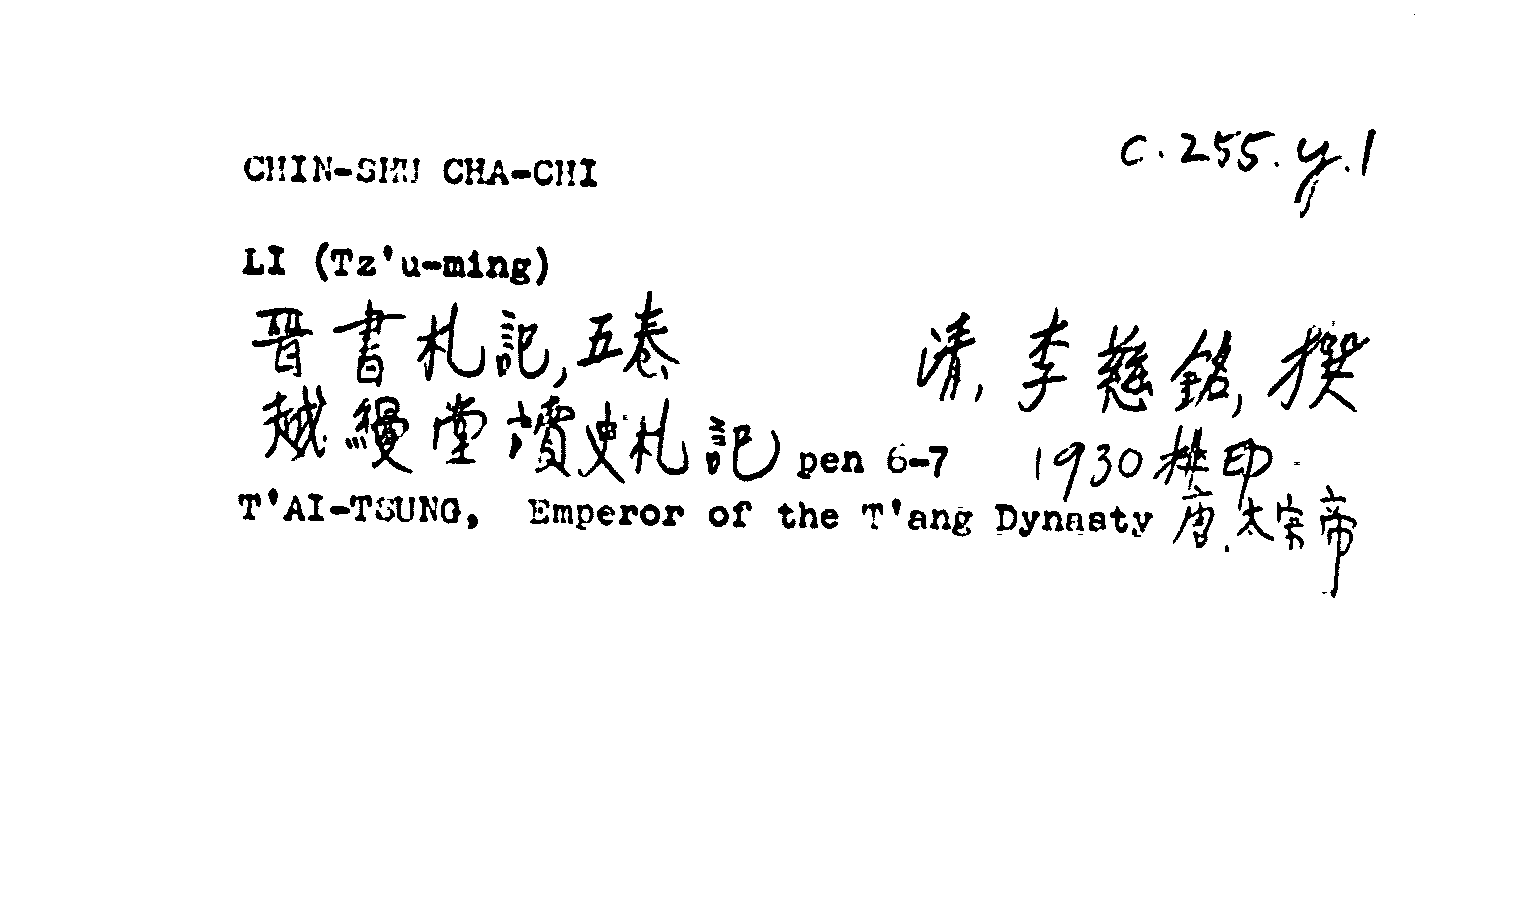 CHIN-SHU CHA-CHI c.255.y.1
LI (Tz'u-ming)
晉書札記,五卷 清,李慈銘,撰
越縵堂讀史札記 pen 6-7 1930 排印
T'AI-TSUNG, Emperor of the T'ang Dynasty 唐.太宗帝